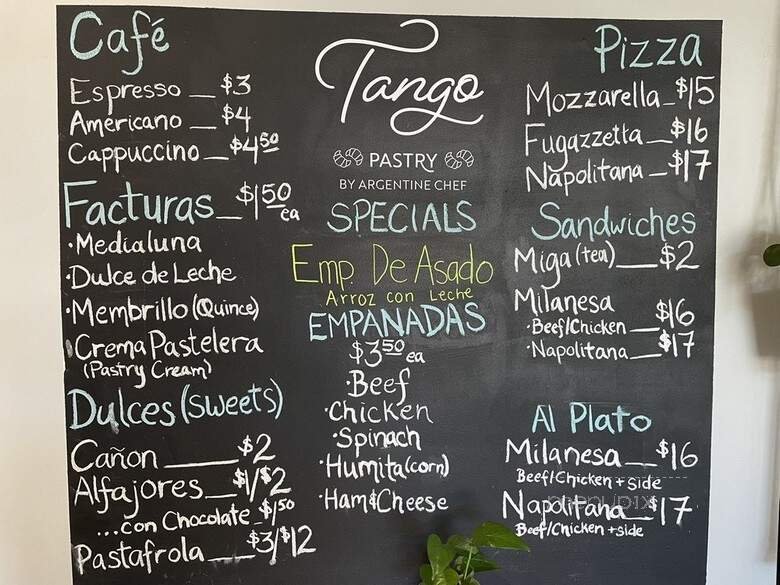 Café
Espresso __ $3
Americano __ $4
Cappuccino __ $4.50
Facturas __ $1.50 ea
·Medialuna
·Dulce de Leche
·Membrillo (Quince)
·Crema Pastelera
(Pastry Cream)
Dulces (sweets)
Cañon ____ $2
Alfajores __ $1/$2
...con Chocolate _ $1.50
Pastafrola __ $3/$12
Tango
PASTRY
BY ARGENTINE CHEF
SPECIALS
Emp. De Asado
Arroz con Leche
EMPANADAS
$3.50 ea
·Beef
·Chicken
·Spinach
·Humita (corn)
·Ham & Cheese
Pizza
Mozzarella _ $15
Fugazzetta __ $16
Napolitana __ $17
Sandwiches
Miga (tea) ___ $2
Milanesa
·Beef/Chicken __ $16
·Napolitana __ $17
Al Plato
Milanesa __ $16
Beef/Chicken + side
Napolitana __ $17
Beef/Chicken + side